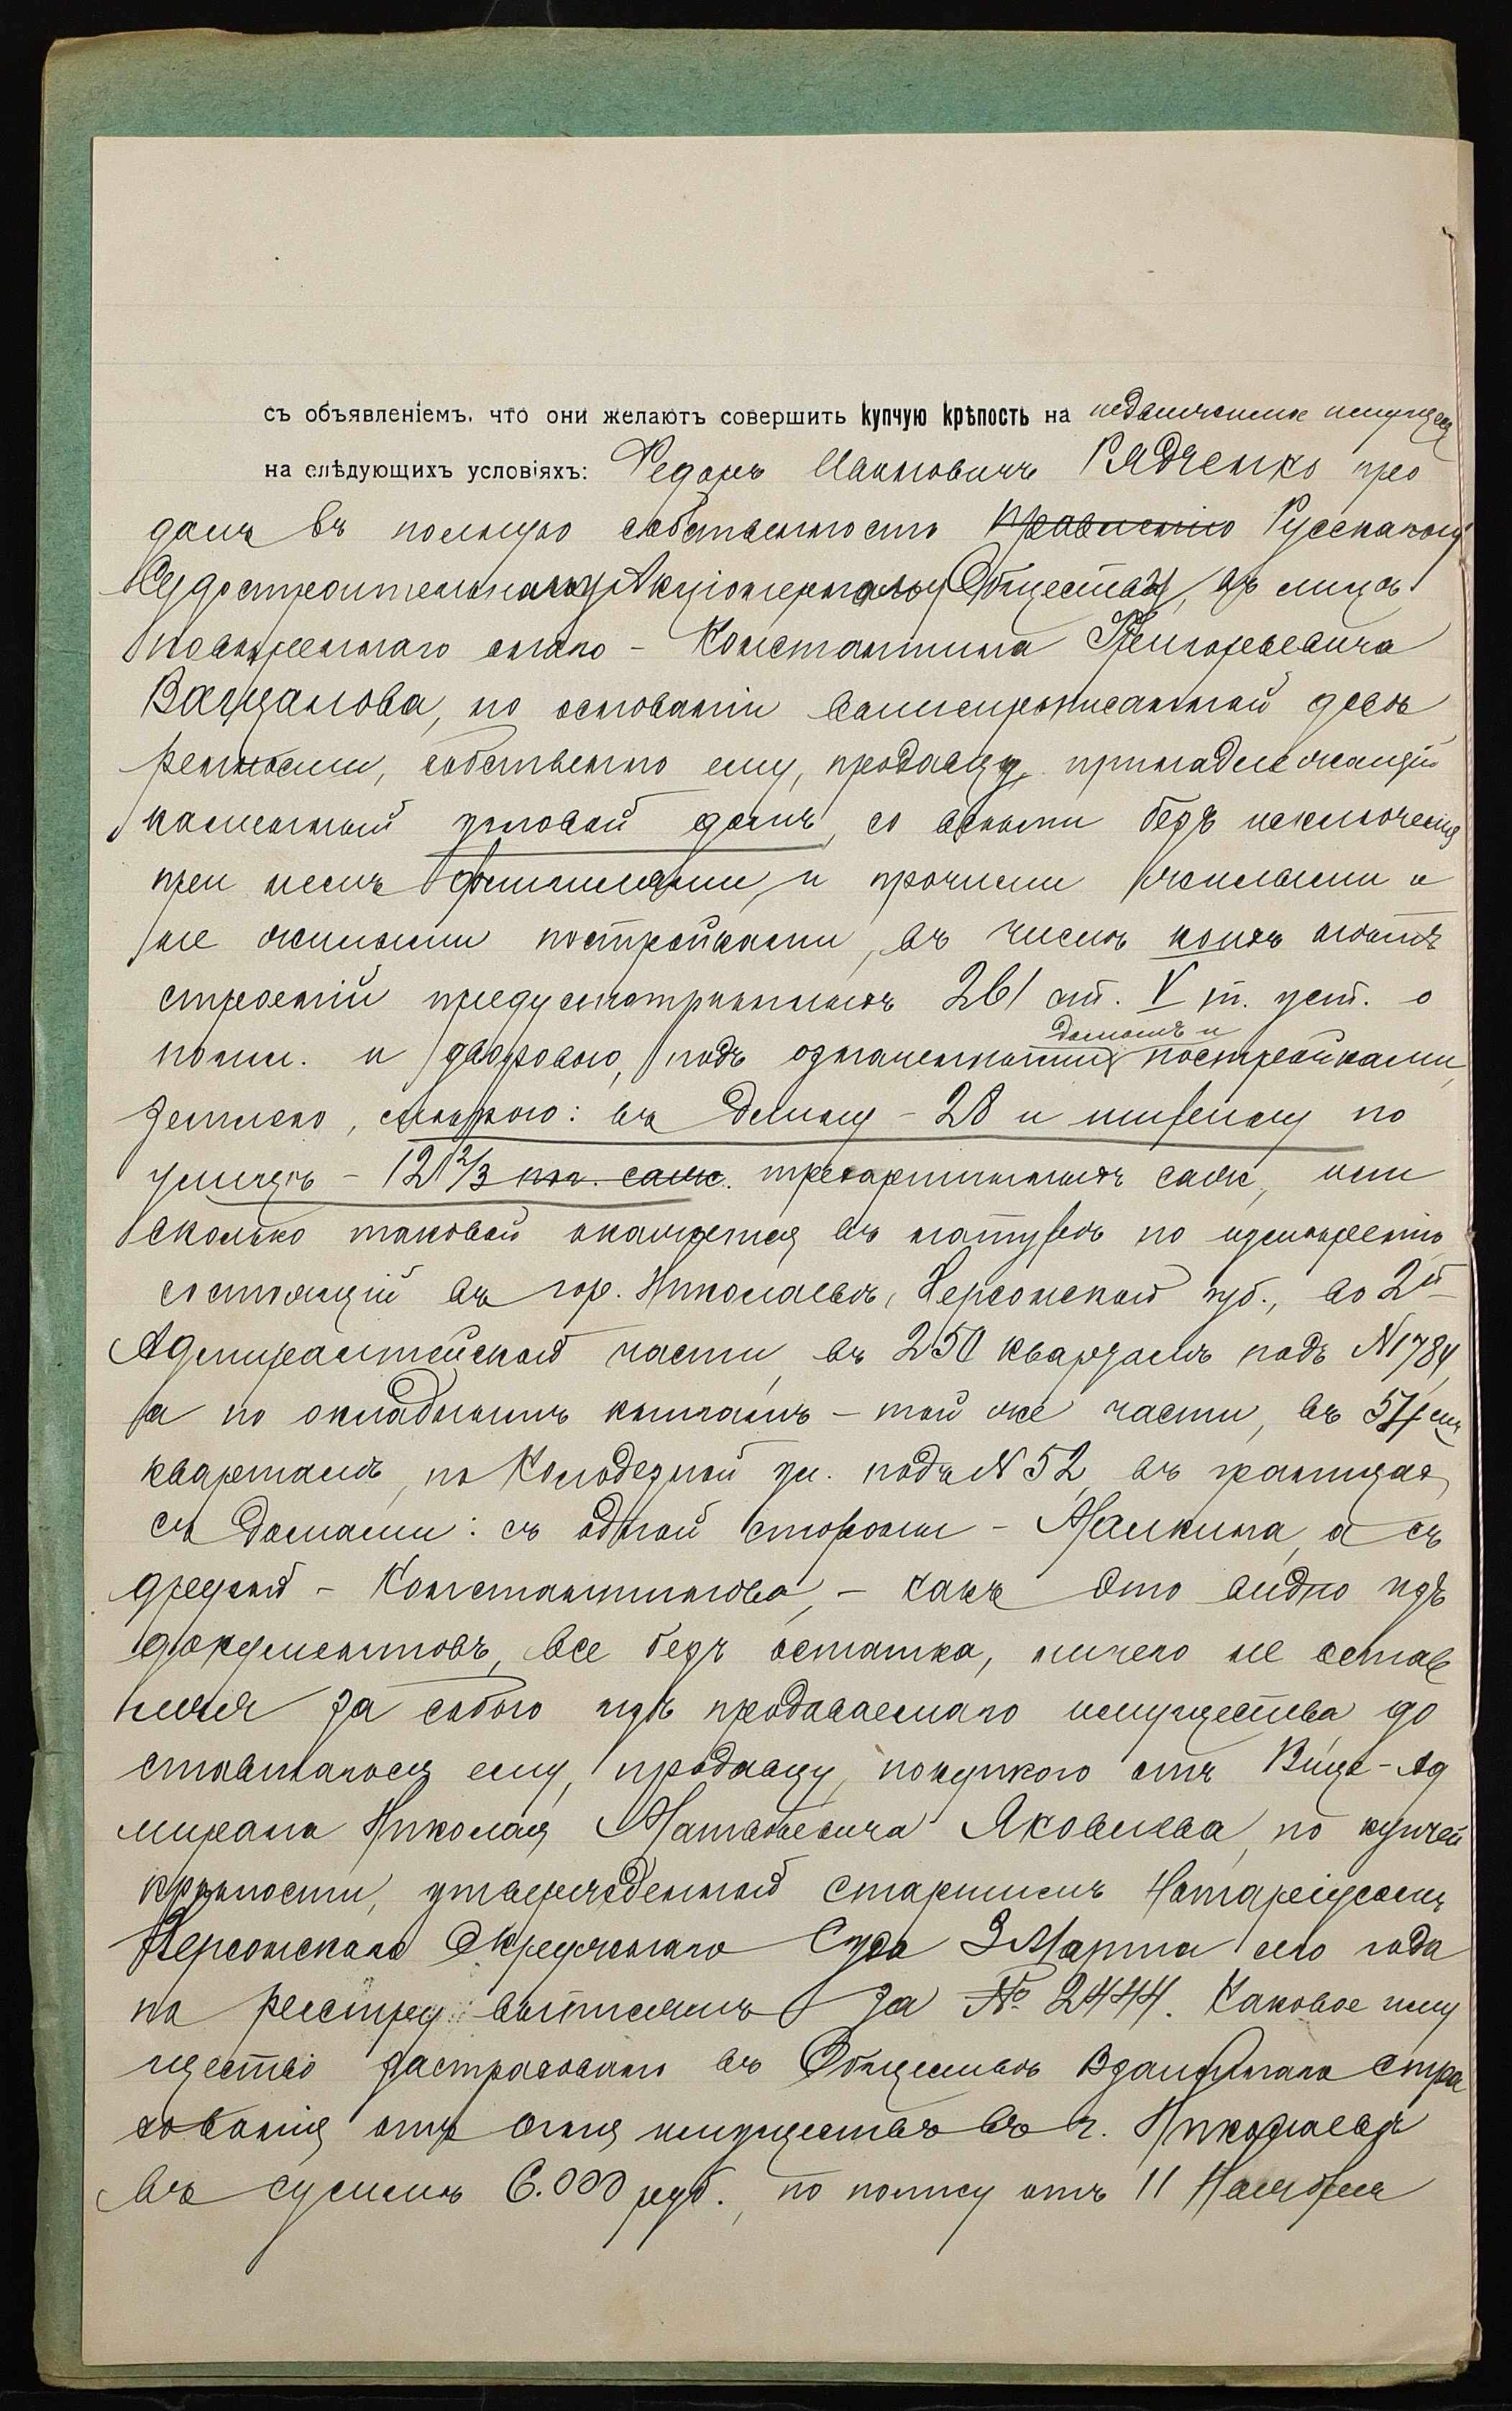 съ объявленіемъ, что они желаютъ совершить купчую крѣпость на недвижимое имущес
на слѣдующихъ условіяхъ: Федоръ Ивановичъ Рядченко про
далъ въ полную собственность правленію Русскому
Судостроительному Акціонерному Обществу, въ лицѣ
повѣреннаго онаго - Константина Григорьевича
по основаніи вышепрописанной довѣ
ренности, собственно ему, продавцу, принадлежащій
каменный угловой домъ, со всѣми безъ исключенія
при немъ флигелями, и прочими жилыми и
не жилыми постройками, въ числѣ коихъ нѣтъ
строеній предусмотрѣнныхъ 261 ст. V т. уст. о
домомъ и
пошл. и дворовою, подъ означенными постройками,
землею, мѣрою: въ длину - 28 и ширину по
улицѣ - 12 2/3 пог. саж. трехаршинныхъ саж, или
сколько таковой окажется въ натурѣ по измѣренію
состоящій въ гор. Николаевѣ, Херсонской губ., во 2й
Адмиралтейской части, въ 250 кварталѣ подъ № 1784,
а по окладнымъ книгамъ - той же части, въ 57
кварталѣ, по Колодезной ул. подъ № 52, въ границахъ
съ домами: съ одной стороны - Малкина, а съ
другой - Константинова, - какъ это видно изъ
документовъ, все безъ остатка, ничего не остав
ляя за собою изъ продаваемаго имущества до
ставшагося ему, продавцу, покупкою отъ Вице-Ад
мирала Николая Матвѣевича Яковлева, по купчей
крѣпости, утвержденной старшимъ Нотаріусомъ
Херсонскаго Окружнаго Суда 3 Марта сего года
по реестру выписямъ за № 2444. Каковое иму
щество застраховано въ Обществѣ Взаимнаго стра
хованія отъ огня имуществъ въ г. Николаевѣ
въ суммѣ 6.000 руб., по полису отъ 11 Ноября